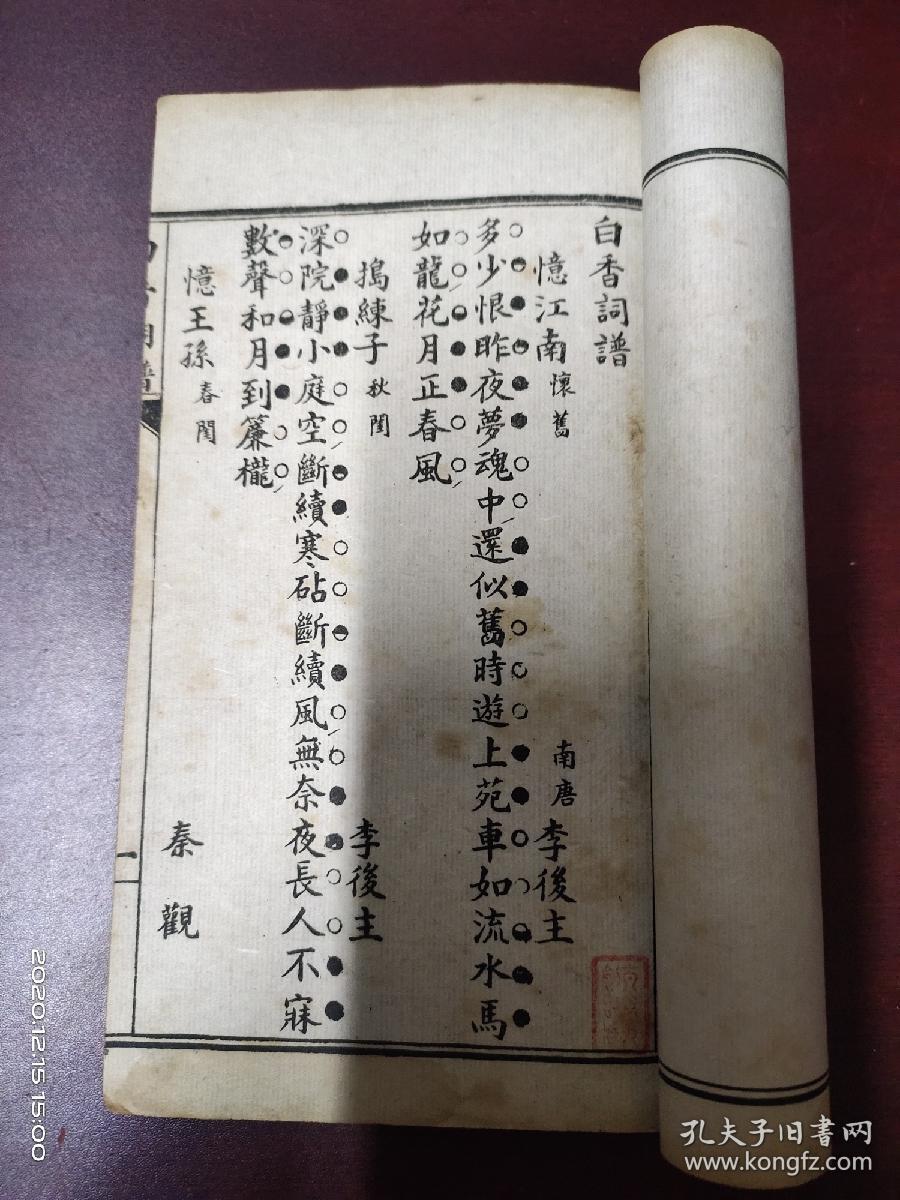 白香詞譜
憶江南 懷舊 南唐 李後主
多少恨昨夜夢魂中還似舊時遊上苑車如流水馬
如龍花月正春風
搗練子 秋閨 李後主
深院靜小庭空斷續寒砧斷續風無奈夜長人不寐
數聲和月到簾櫳
憶王孫 春閨 秦觀
一
2020.12.15 15:00
孔夫子旧書网
www.kongfz.com